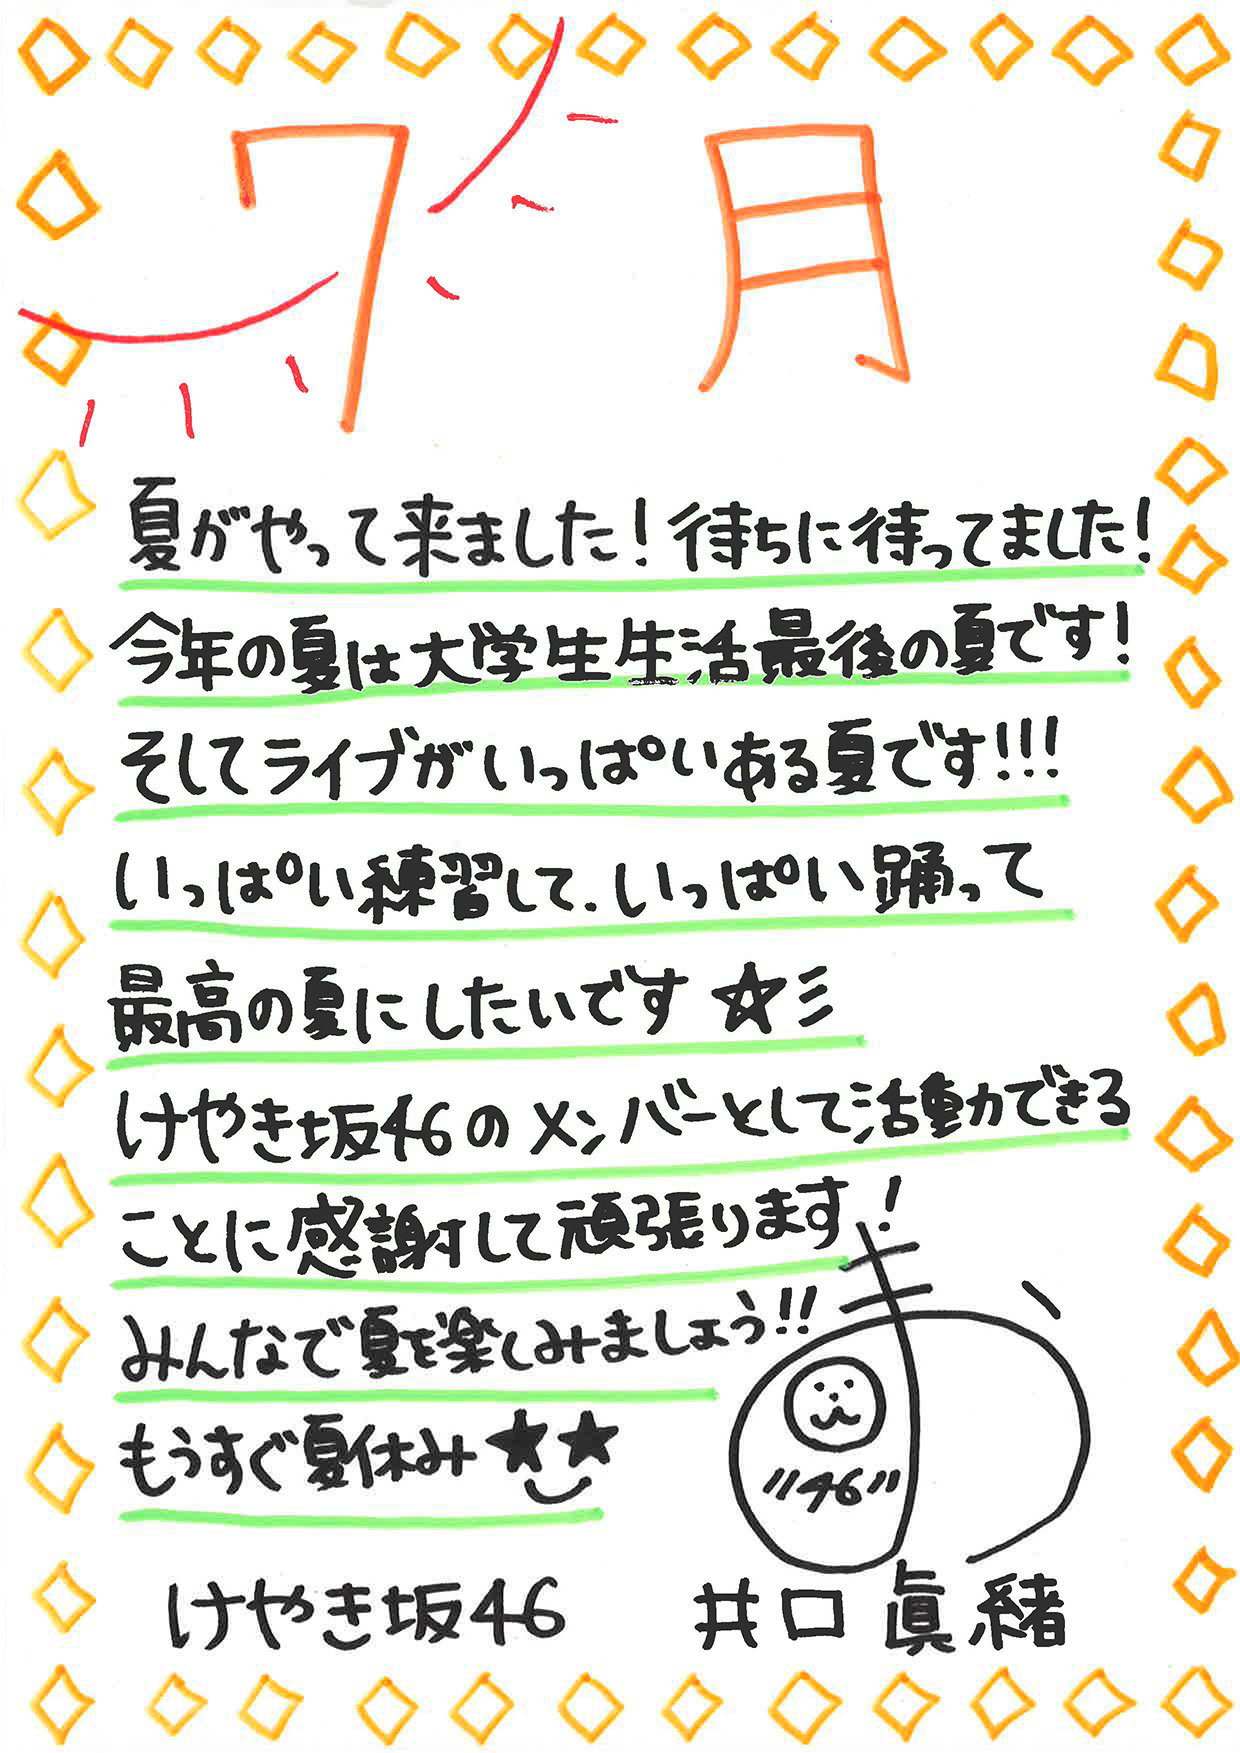 7月
夏がやって来ました!待ちに待ってました!
今年の夏は大学生生活最後の夏です!
そしてライブがいっぱいある夏です!!!
いっぱい練習して、いっぱい踊って
最高の夏にしたいです☆彡
けやき坂46のメンバーとして活動できる
ことに感謝して頑張ります!
みんなで夏を楽しみましょう!!
もうすぐ夏休み★★
"46"
けやき坂46 井口眞緒